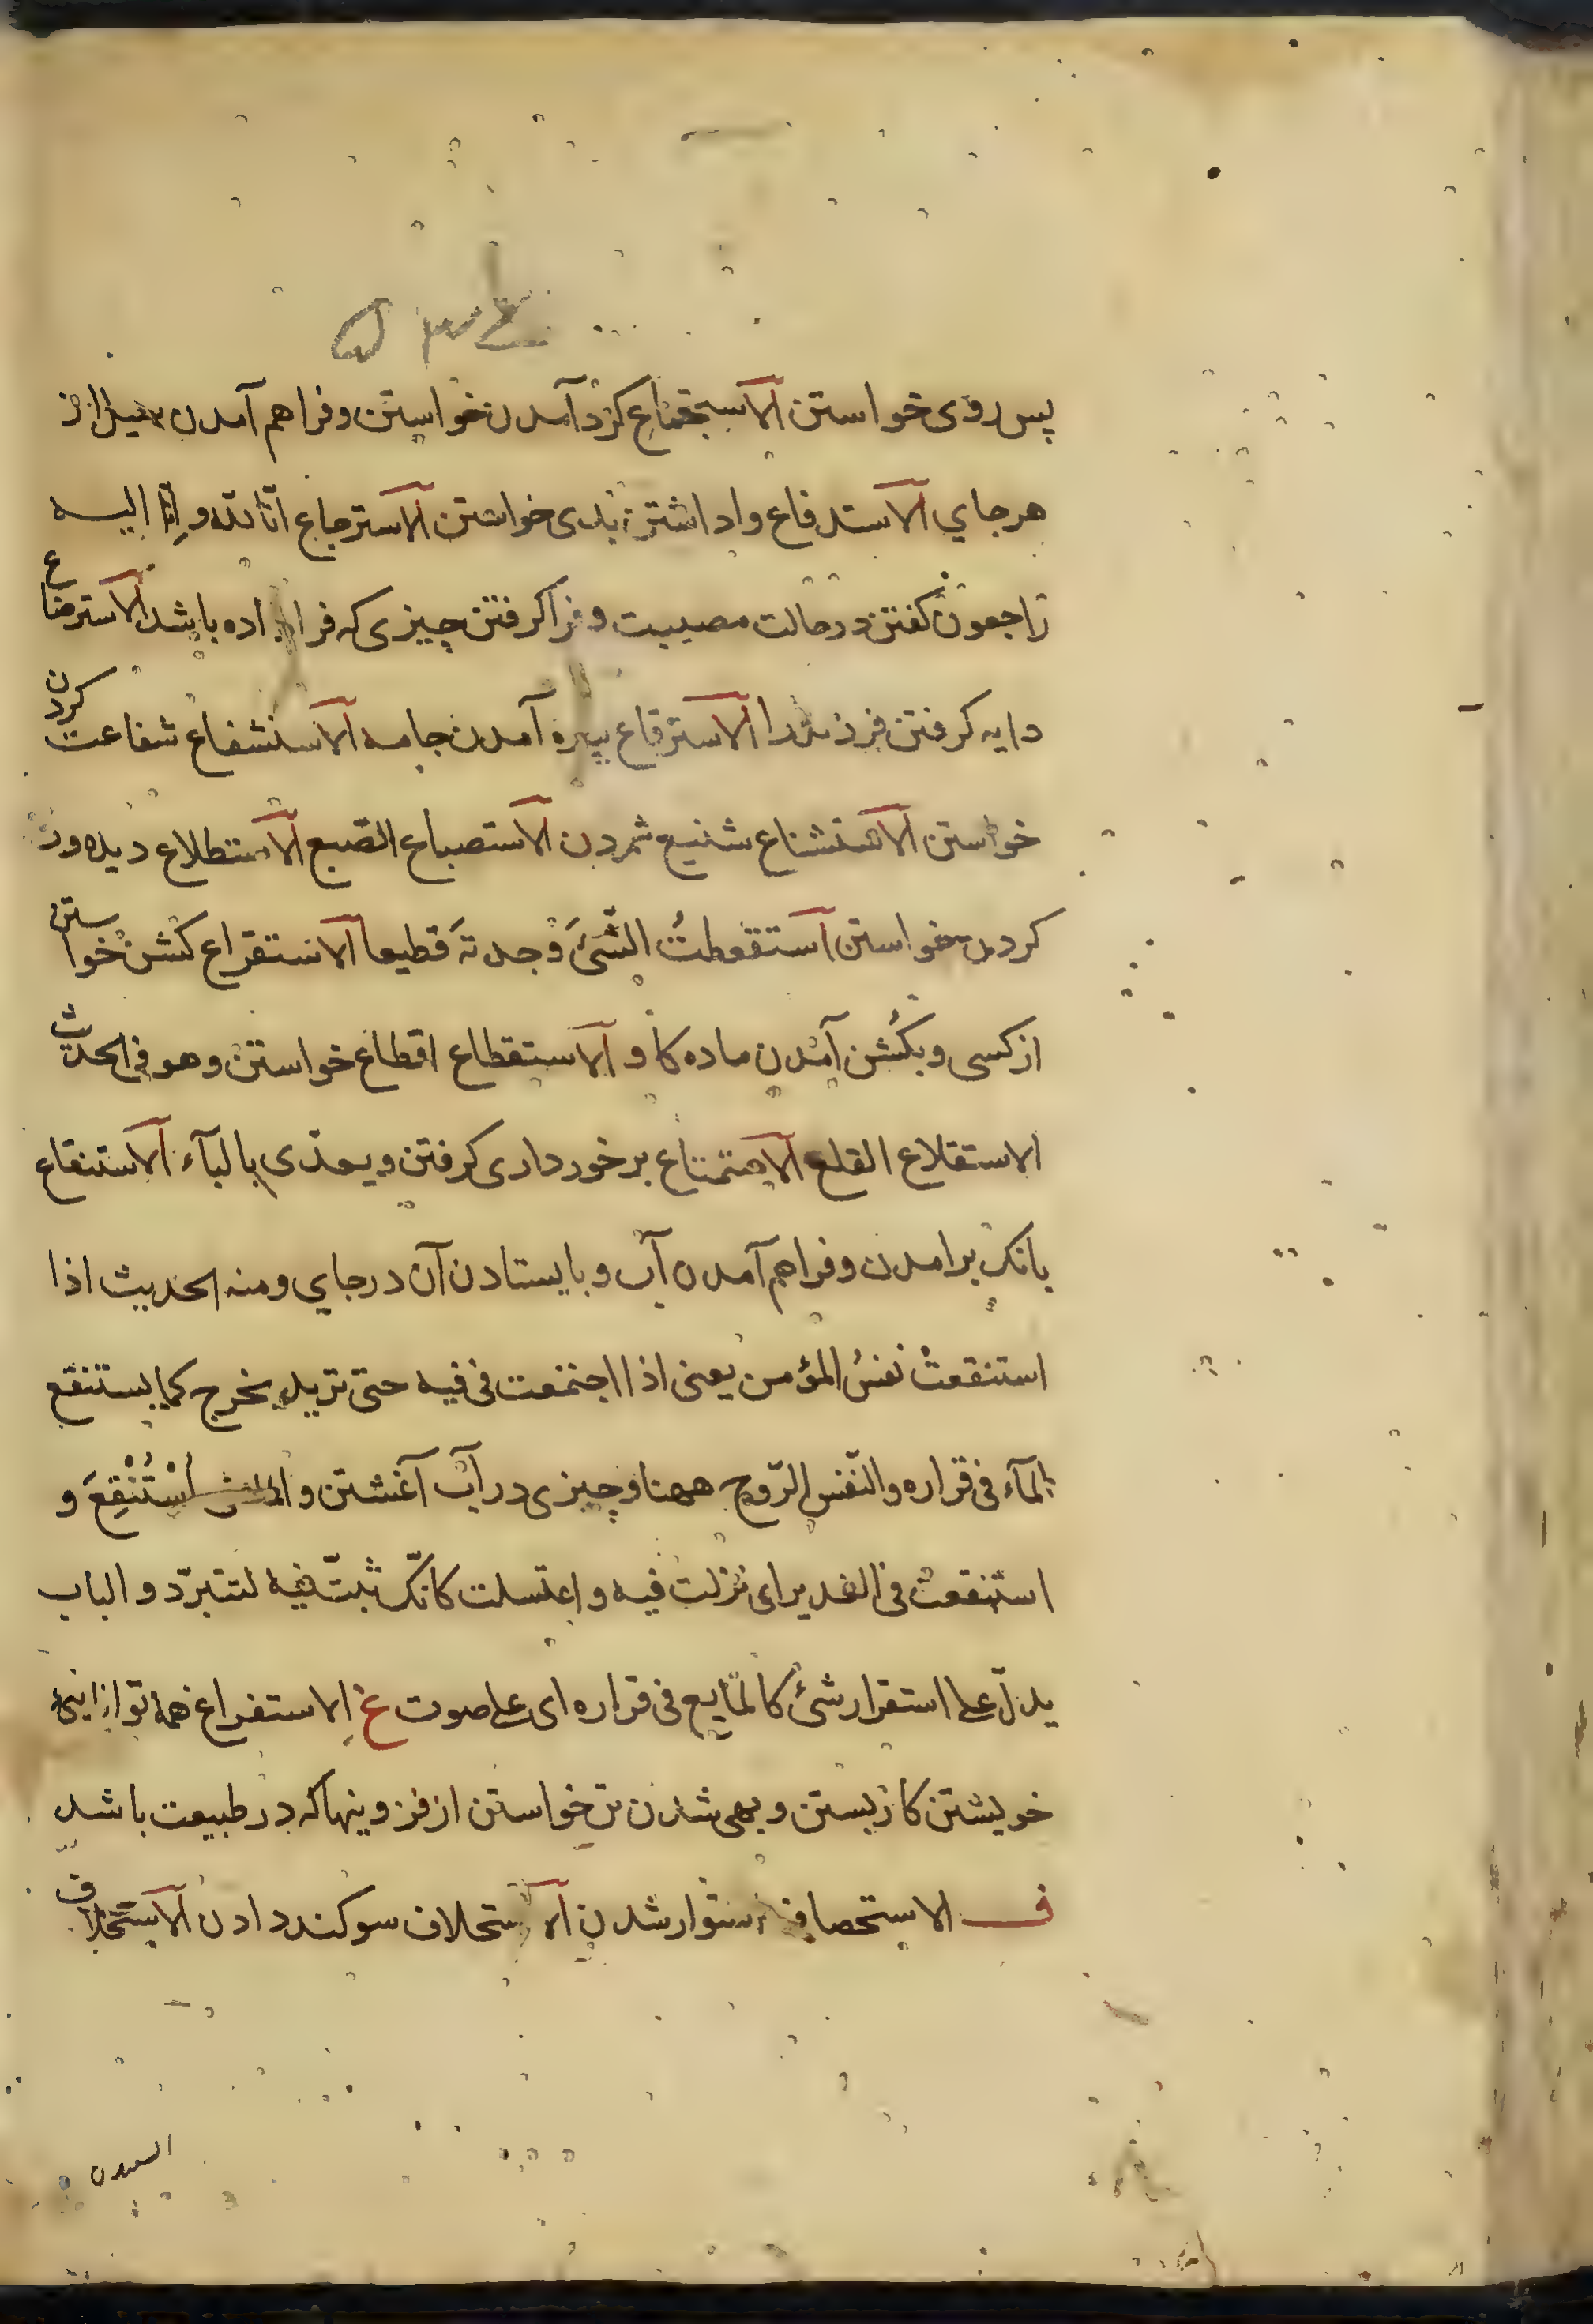 پس روی خواستن الاستجماع کرد آمدن خواستن و فراهم آمدن سیل از
هر جاي الاستدفاع واداشتن بدی خواستن الاسترجاع انّا لله و اِنّا الیه
راجعون کفتن در حالت مصیبت و فرا کرفتن چیزی که فرا داده باشد الاسترضاع
دایه کرفتن فرزند را الاسترقاع بپره آمدن جامه الاستشفاع شفاعت کردن
خواستن الاستشناع شنیع شمردن الاستصباع الصّبع الاستطلاع دیده ور
کردن خواستن استقطعتُ الشّئَ وجدتهَ قطیعا الاستقراع کشن خواستن
از کسی و بکُشن آمدن ماده کاو الاستقطاع اقطاع خواستن و هو فی الحدیث
الاستقلاع القلع الاستمتاع برخورداری کرفتن و یعدّی بالبآء الاستنقاع
بانک برامدن و فراهم آمدن آب و بایستادن آن در جاي و منه الحدیث اذا
استنقعتْ نفسُ المؤمن یعنی اذا اجتمعت فی فیه حتی ترید یخرج کما یستنقع
المآء فی قراره والنّفس الرّوح ههنا و چیزی در آب آغشتن و اُسْتُنْقِعَ و
استنقعت فی الغدیر ای نزلت فیه و اغتسلت کانّک ثبتّ فیه لتتبرّد و الباب
یدلّ علی استقرار شئ کالمایع فی قراره ای علی صوت غ الاستفراغ همه توانایی
خویشتن کار بستن و بهی شدن تن خواستن از فزونیها که در طبیعت باشد
ف الاستحصاف استوار شدن الاستحلاف سوکند دادن الاستخلاف